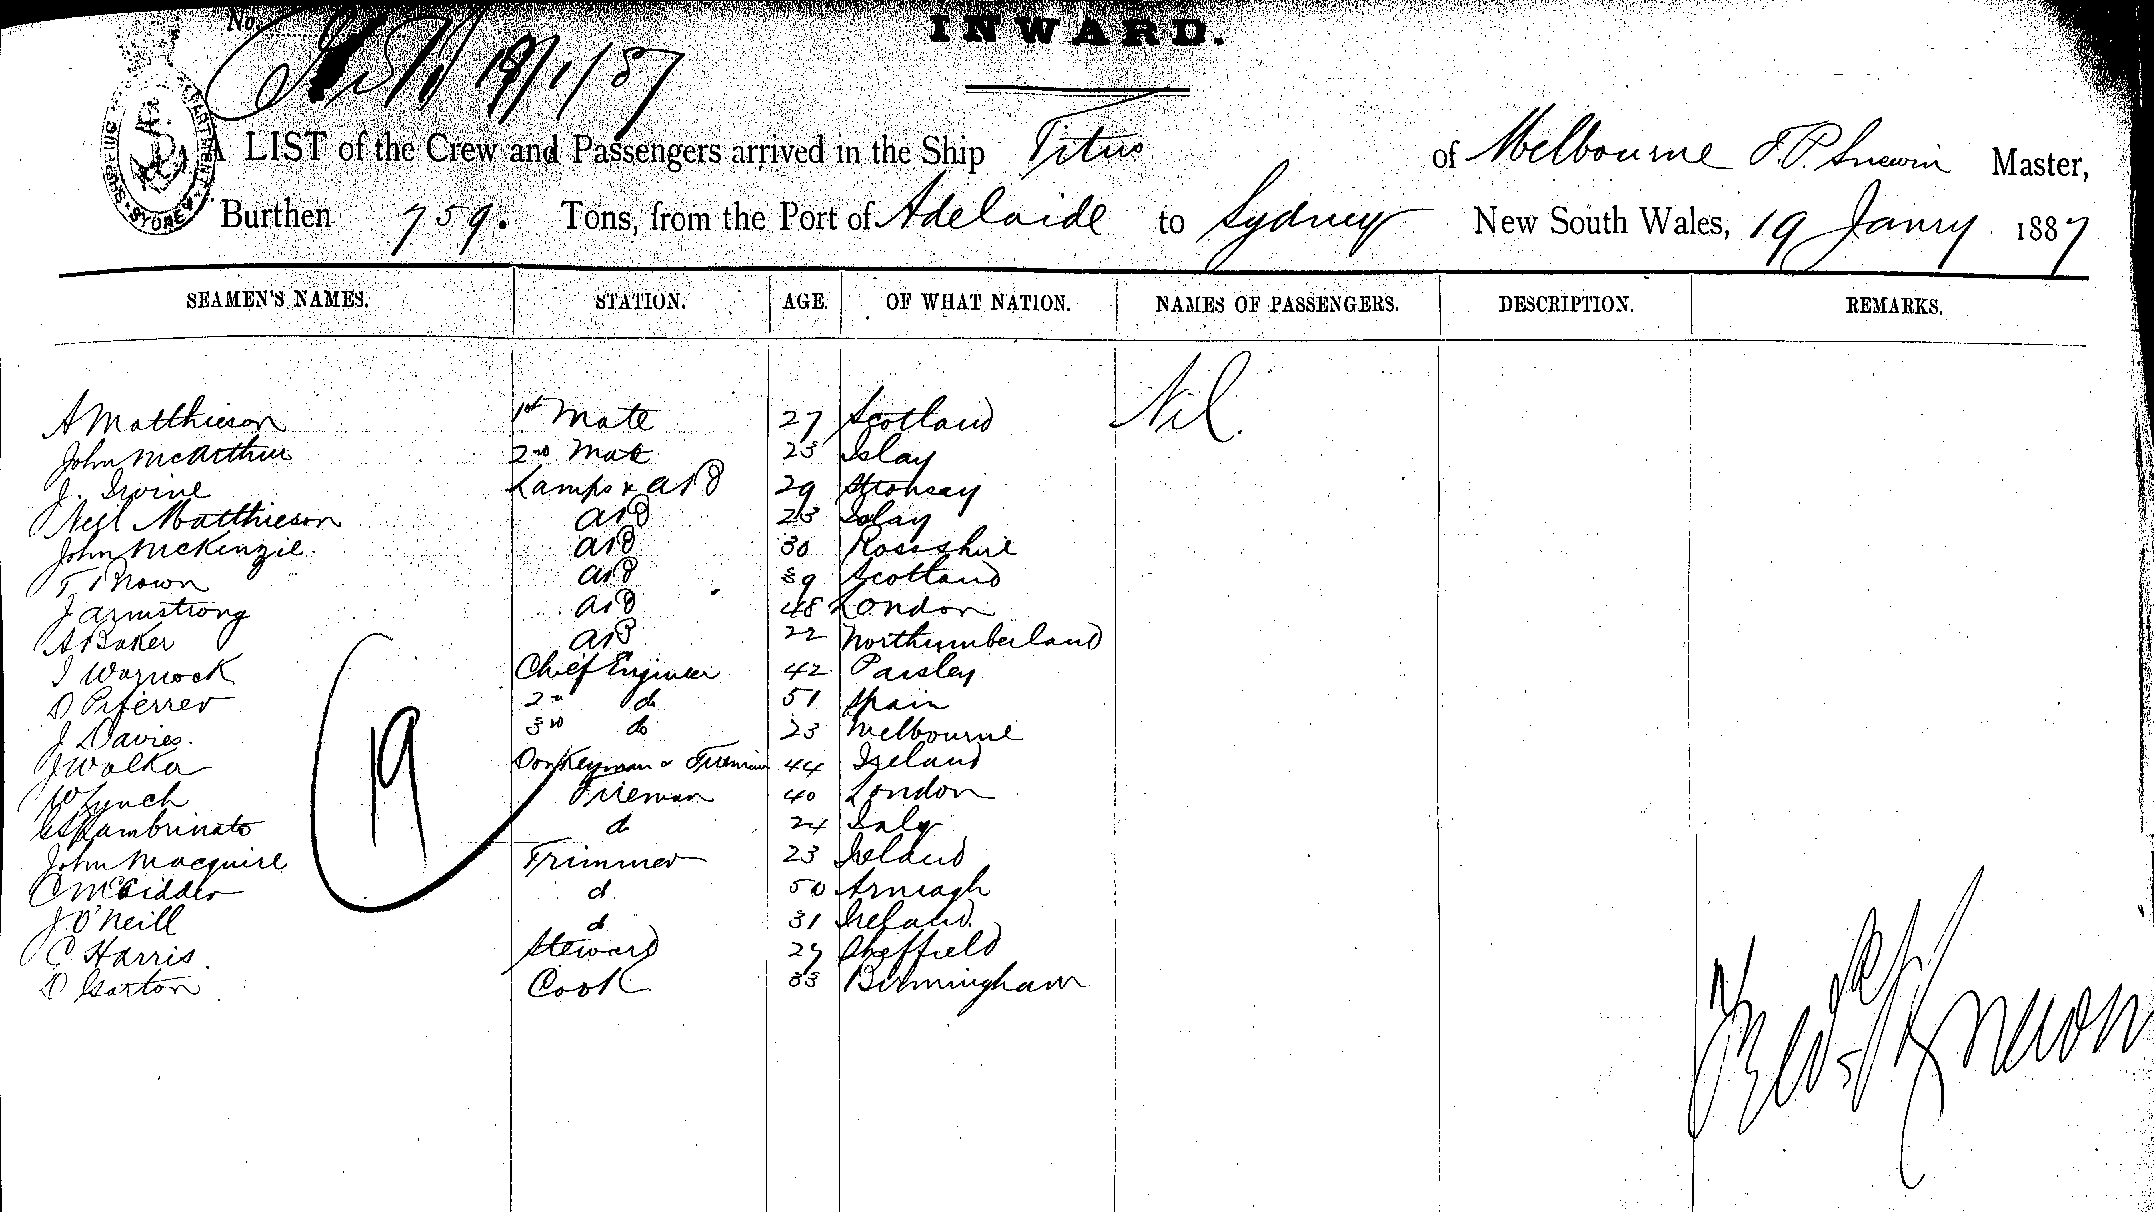 No.
INWARD.
19/1/87
SHIPPING SYDNEY
A LIST of the Crew and Passengers arrived in the Ship Titus of Melbourne F. P. Snewin Master,
Burthen 759. Tons, from the Port of Adelaide to Sydney New South Wales, 19 Janry 1887
SEAMEN'S NAMES. STATION. AGE. OF WHAT NATION. NAMES OF PASSENGERS. DESCRIPTION. REMARKS.
A Matthieson 1st Mate 27 Scotland Nil.
John McArthur 2nd Mate 23 Islay
J. Irvine Lamps & AB 29 Stronsay
Neil Matthieson AB 23 Islay
John McKenzie AB 30 Rossshire
T Brown AB 39 Scotland
J Armstrong AB 48 London
A Baker AB 22 Northumberland
J Warnock Chief Engineer 42 Paisley
D Piferrer 2nd do 51 Spain
J Davies. 3rd do 23 Melbourne
J Walker Donkeyman & Fireman 44 Ireland
W Lynch Fireman 40 London
do 24 Italy
John Macquire Trimmer 23 Ireland
C d 50 Armagh
J O'Neill d 31 Ireland.
C Harris. Steward 27 Sheffield
D Garton Cook 33 Birmingham
19